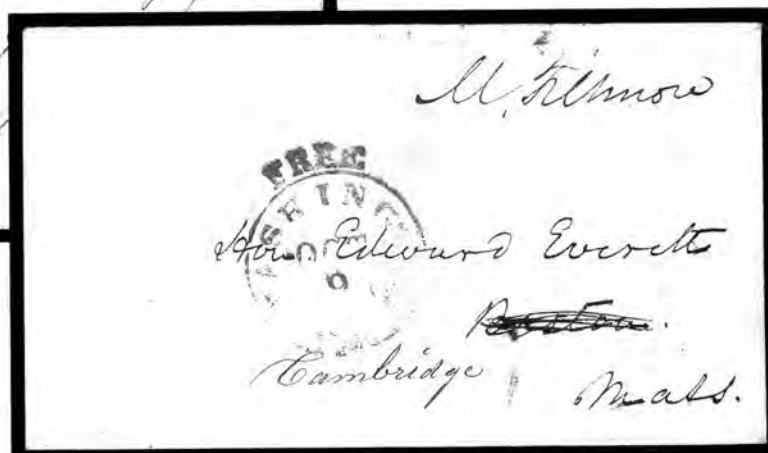 M. Fillmore
FREE
Hon. Edward Everett
Boston.
Cambridge
Mass.